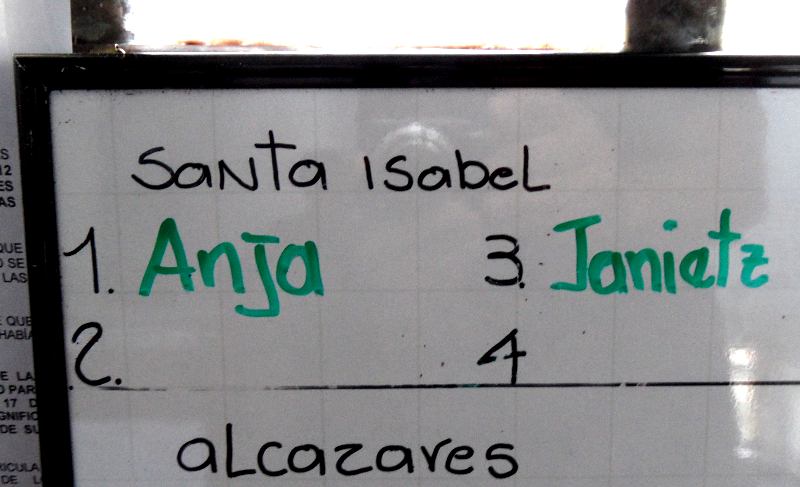 Santa Isabel
1. Anja 3. Janietz
2. 4
alcazares
S
12
ES
AS
QUE
O SE
LAS
E QUE
HABÍA
E LA
O PAR
17 D
GNIFIC
DE SU
RICULA
DE L